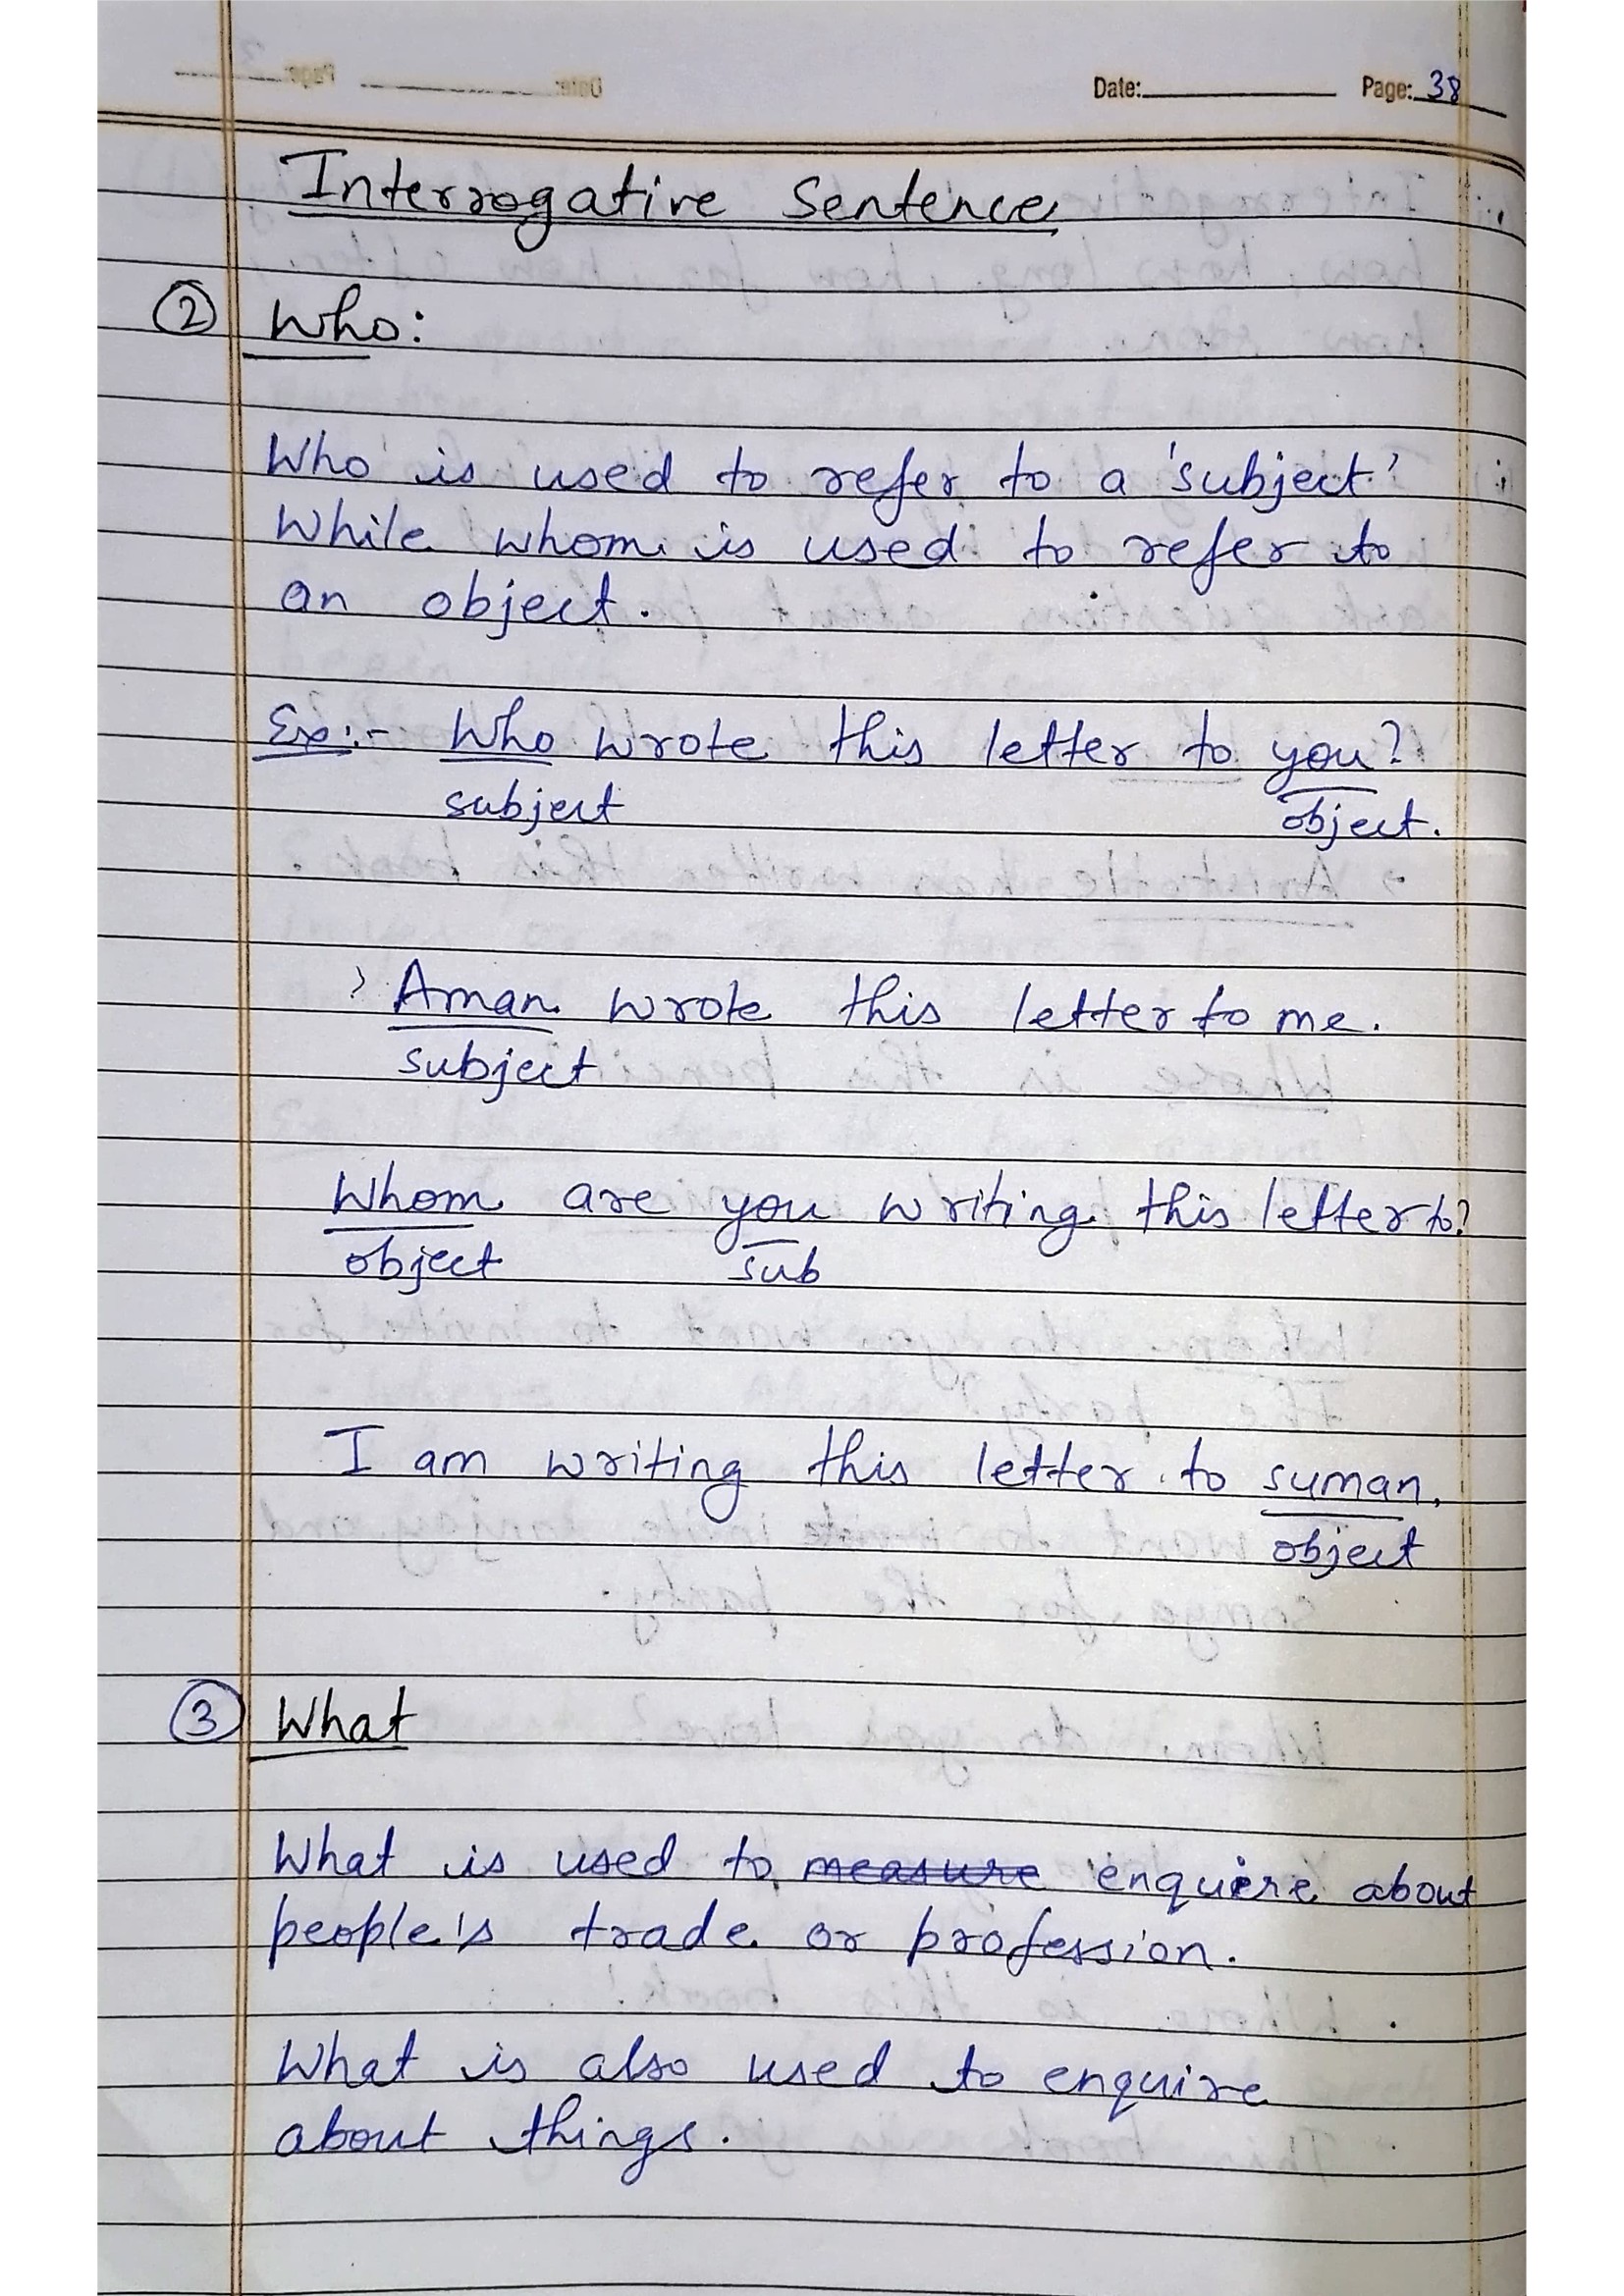 Date: Page: 38
Interrogative Sentence
② Who:
Who is used to refer to a 'subject'
While whom is used to refer to
an object.
Ex:- Who wrote this letter to you?
subject object.
Aman wrote this letter to me.
subject
Whom are you writing this letter to?
object sub
I am writing this letter to suman.
object
③ What
What is used to measure enquire about
people's trade or profession.
What is also used to enquire
about things.